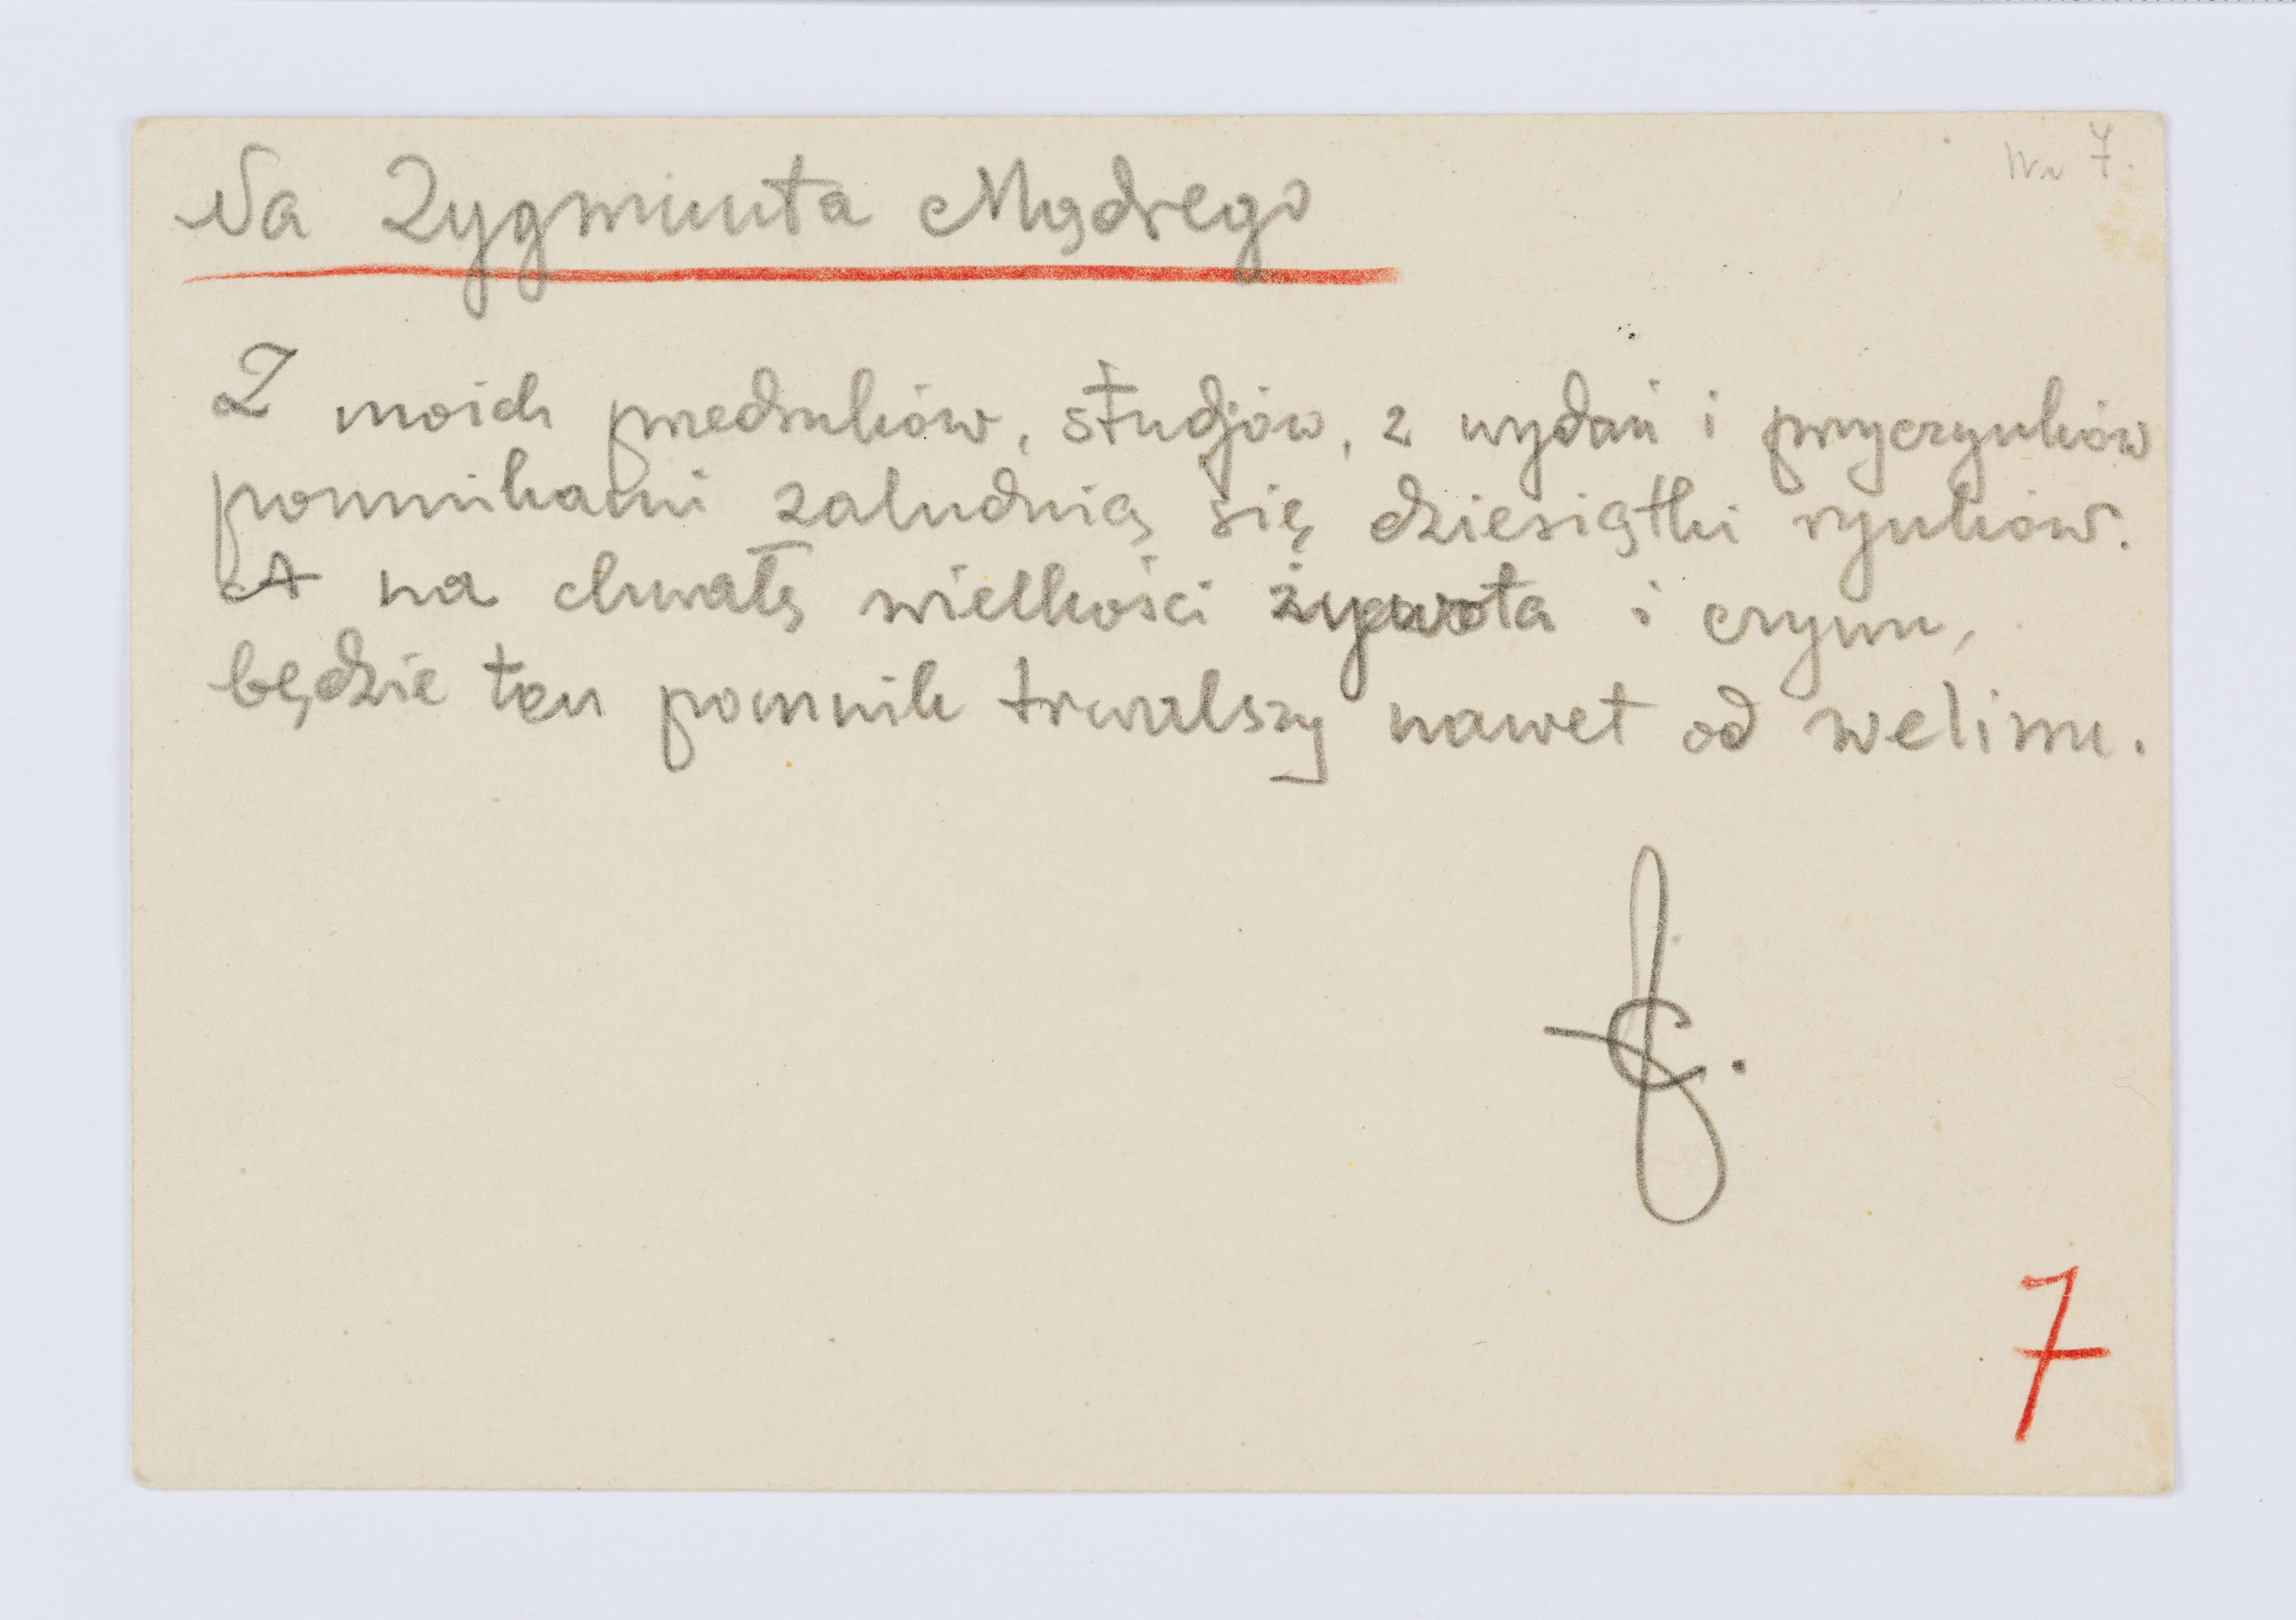 Nr 7.
Na Zygmunta Mądrego
Z moich przedruków, studjów, z wydań i przyczynków
pomnikami zaludnią się dziesiątki rynków.
A na chwałę wielkości żywota i czynu,
będzie ten pomnik trwalszy nawet od welinu.
7